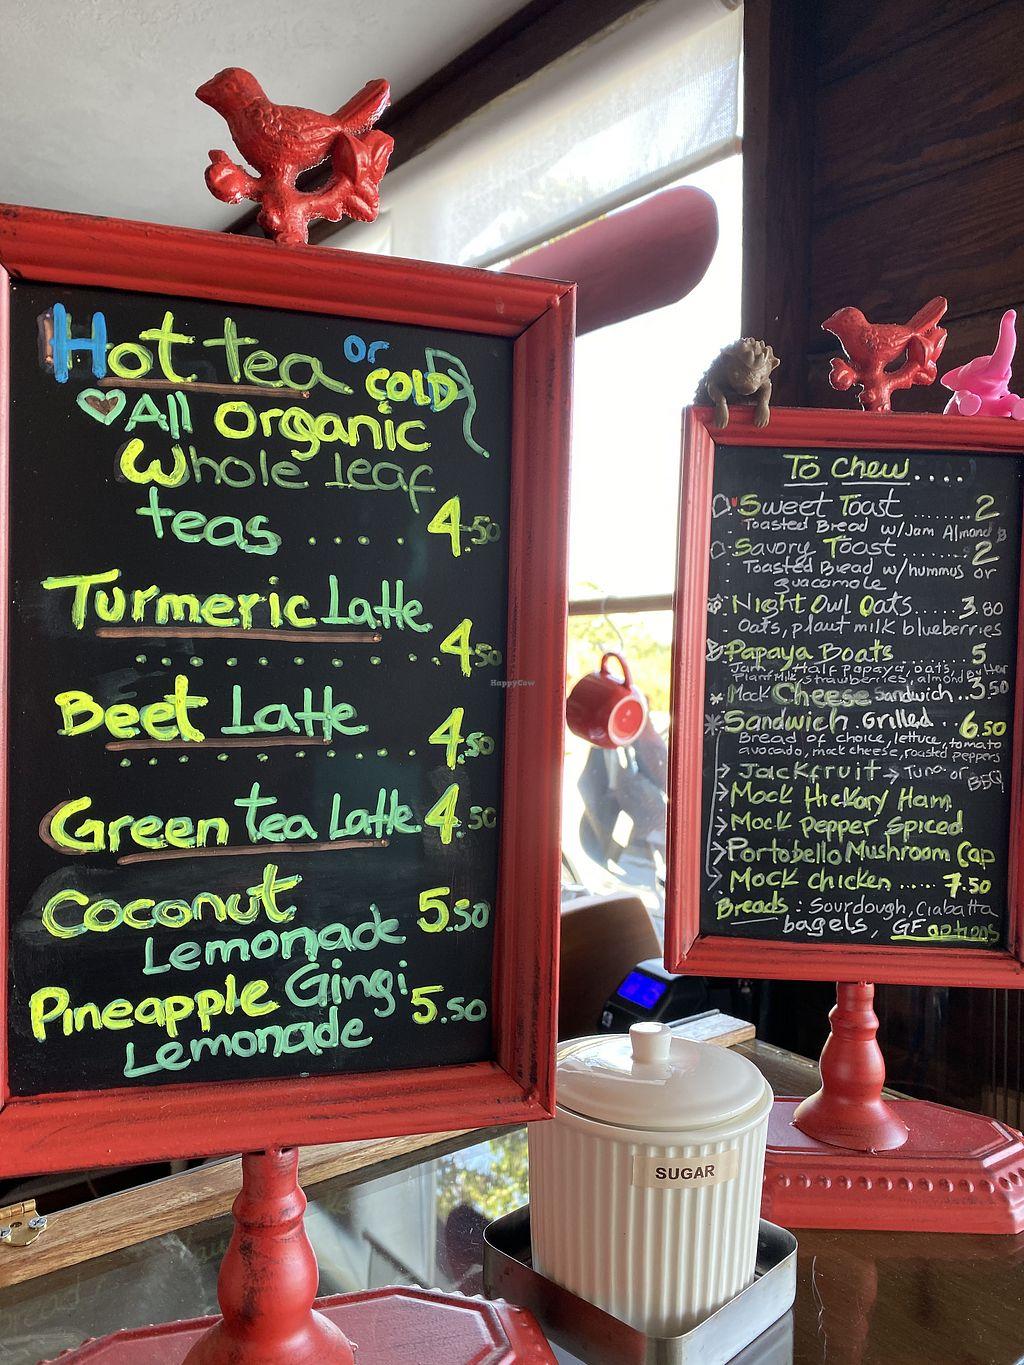 Hot tea or COLD
All organic
Whole leaf
teas .... 4.50
Turmeric Latte
............ 4.50
Beet Latte
............ 4.50
Green tea Latte 4.50
Coconut 5.50
Lemonade
Pineapple Gingi 5.50
Lemonade
HappyCow
To Chew....
Sweet Toast ....... 2
Toasted Bread w/Jam Almond B
Savory Toast ........ 2
Toasted Bread w/hummus or
guacamole
Night Owl Oats ...... 3.80
Oats, plant milk blueberries
Papaya Boats ...... 5
Half Papaya, oats,
Plant milk, strawberries, almond Butter
Mock Cheese Sandwich .. 3.50
Sandwich Grilled ... 6.50
Bread of choice, lettuce, tomato
avocado, mock cheese, roasted peppers
Jackfruit → Tuna or BBQ
Mock Hickory Ham
Mock pepper spiced
Portobello Mushroom Cap
Mock chicken ..... 7.50
Breads : Sourdough, Ciabatta
bagels, GF options
SUGAR